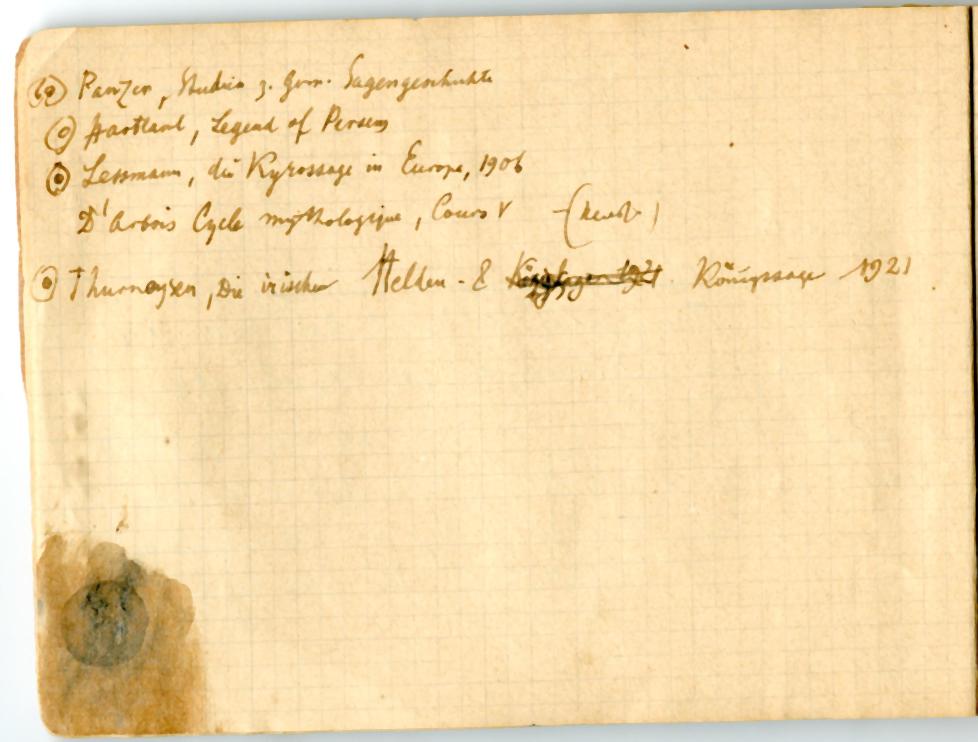 Panzer, Studien z. germ. Sagengeschichte
Hartland, Legend of Perseus
Lessmann, die Kyrossage in Europa, 1906
D'Arbois Cycle mythologique, Cours V
Thurneysen, Die irischen Helden- & Königssage 1921